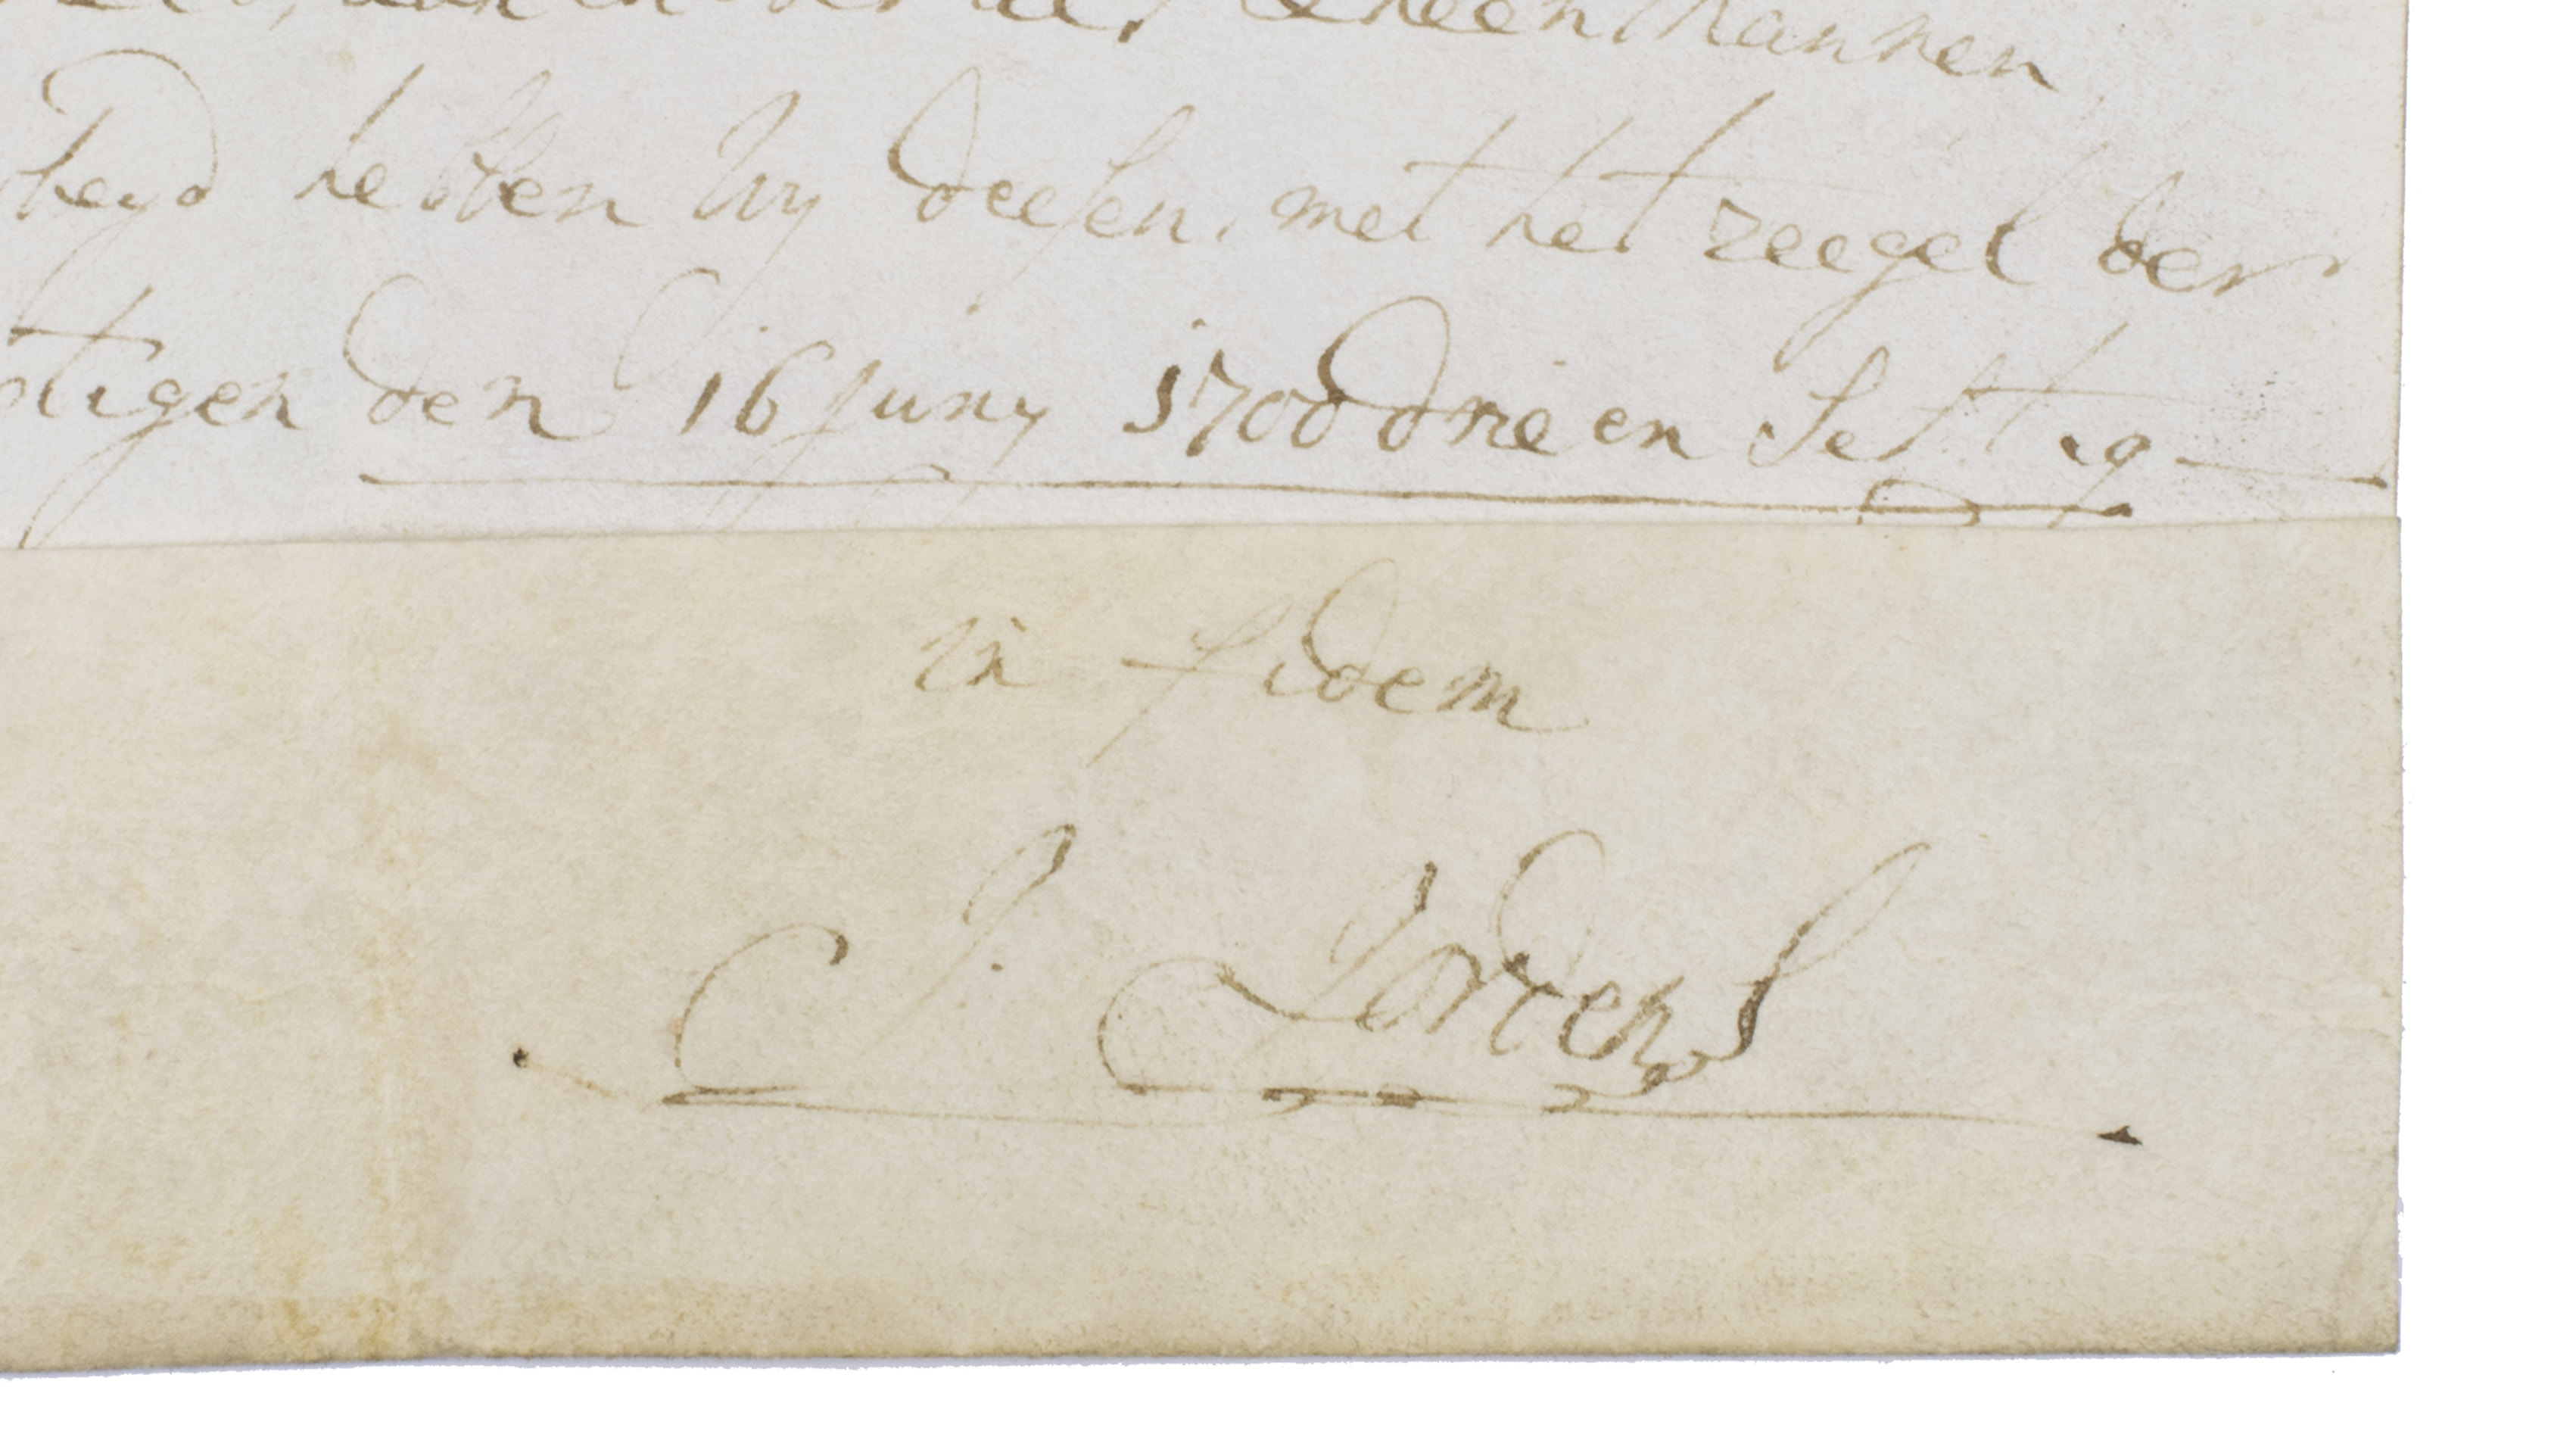 en Mannen
heyd hebben wy deesen, met het zeegel der
stigen den 16 Juny 1700 drie en Settig
in fidem
J. Jordens